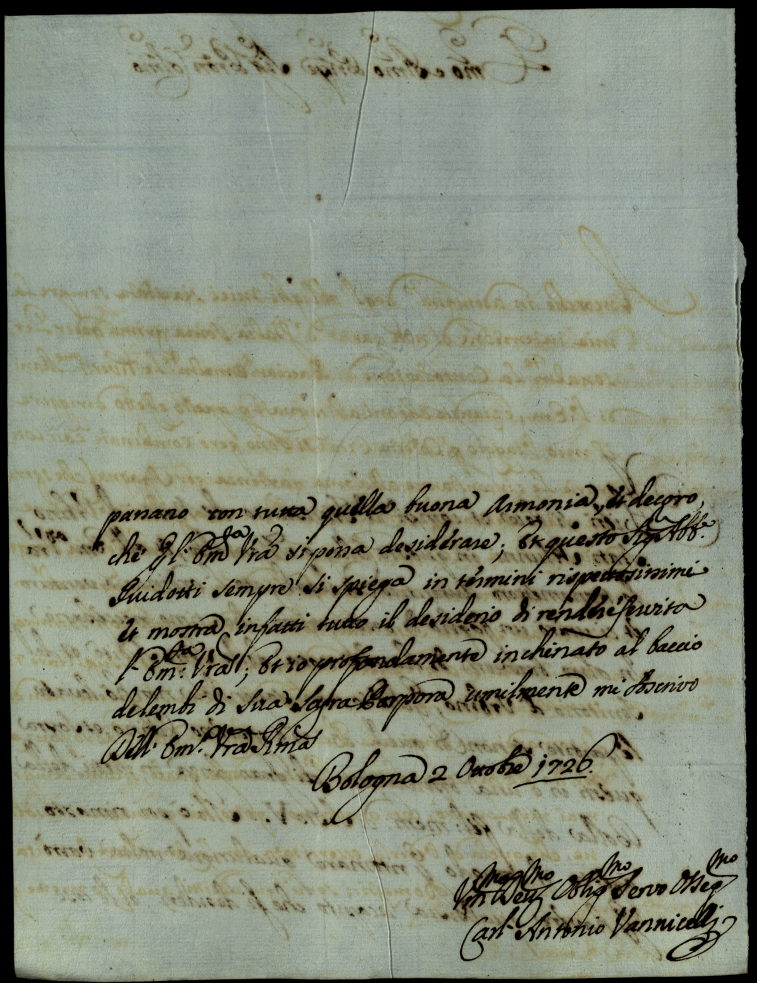 passano con tutta quella buona Armonia, et decoro,
che l' Em.za Vra si possa desiderare; et questo Sig.r Abb.e
Guidotti sempre si spiega in termini rispettosissimi
et mostra infatti tutto il desiderio di rendere servita
l' Em.za Vra; et io profondamente inchinato al baccio
de lembi di sua Sagra Porpora umilmente mi osservo
Dell' Em.za Vra Rma
Bologna 2 Ottobre 1726.
Um.mo Dev.mo Oblig.mo Servo Osseq.mo
Carl' Antonio Vannicelli